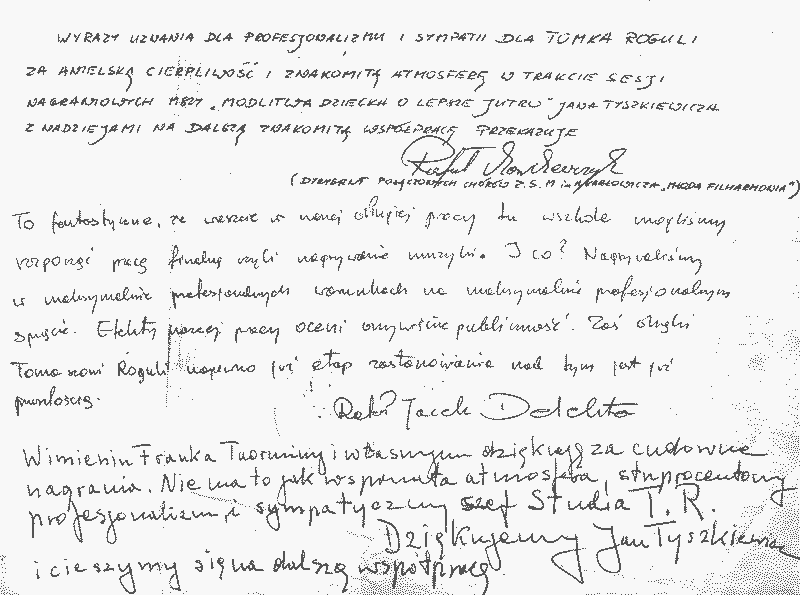 WYRAZY UZNANIA DLA PROFESJONALIZMU I SYMPATII DLA TOMKA ROGULI
ZA ANIELSKĄ CIERPLIWOŚĆ I ZNAKOMITĄ ATMOSFERĘ W TRAKCIE SESJI
NAGRANIOWYCH MSZY „MODLITWA DZIECKA O LEPSZE JUTRO" JANA TYSZKIEWICZA
Z NADZIEJAMI NA DALSZĄ ZNAKOMITĄ WSPÓŁPRACĘ PRZEKAZUJE
Rafał
(DYRYGENT POŁĄCZONYCH CHÓRÓW Z.S.M im. M. KARŁOWICZA „MŁODA FILHARMONIA")
To fantastyczne, że wreszcie w naszej długiej pracy tu wszkole mogliśmy
rozpocząć pracę finalną czyli nagrywanie muzyki. I co? Nagrywaliśmy
w maksymalnie profesjonalnych warunkach na maksymalnie profesjonalnym
sprzęcie. Efekty naszej pracy oceni oczywiście publiczność. Zaś dzięki
Tomaszowi Roguli napewno już etap zastanawiania nad tym jest już
przeszłością.
Jacek
W imieniu Franka Taormimy i własnym dziękuję za cudowne
nagrania. Nie ma to jak wspaniała atmosfera, stuprocentowy
profesjonalizm i sympatyczny szef Studia T.R.
Dziękujemy Jan Tyszkiewicz
i cieszymy się na dalszą współpracę